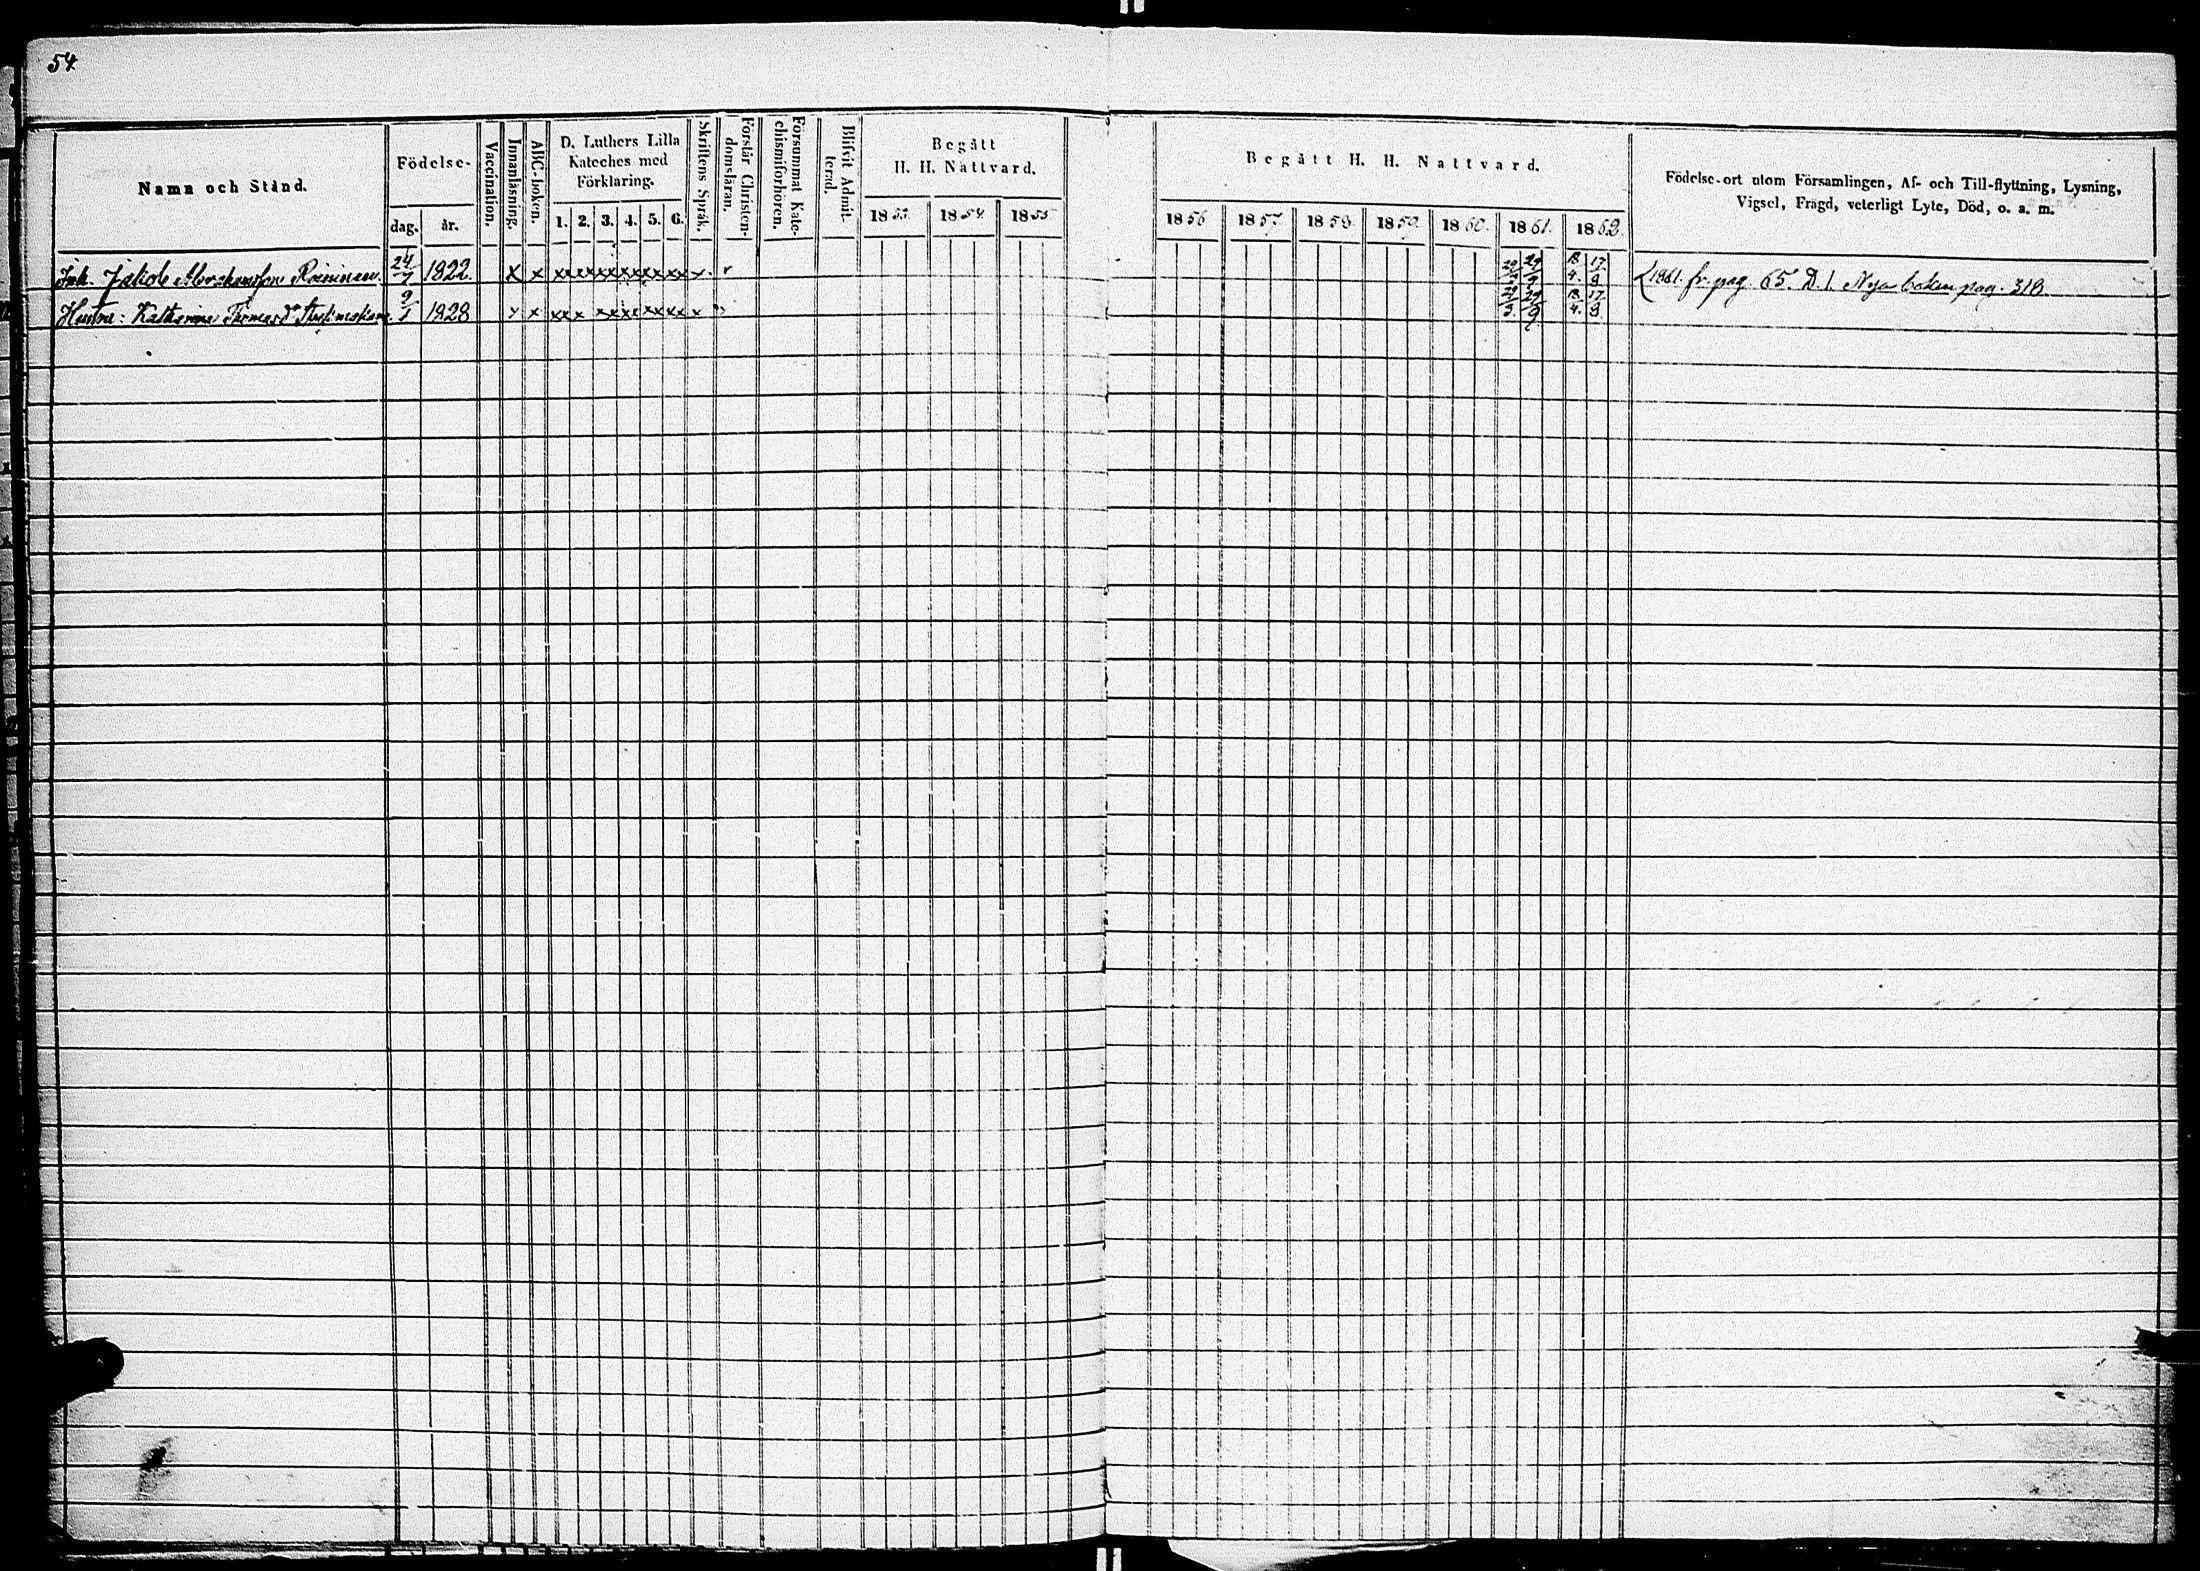 54.
Namn och Stånd.
Födelse-
dag.
år.
Vaccination.
Innanläsning.
ABC-boken.
D. Luthers Lilla
Kateches med
Förklaring.
1. 2. 3. 4. 5. 6.
Skriftens Språk.
Förstår Christen-
domsläran.
Försummat Kate-
chismiförhören.
Blifvit Admit-
terad.
Begått
H. H. Nattvard.
1853. 1854. 1855
Begått H. H. Nattvard.
1856 1857. 1858. 1859. 1860. 1861. 1862.
Födelse-ort utom Församlingen, Af- och Till-flyttning, Lysning,
Vigsel, Frägd, veterligt Lyte, Död, o. a. m.
Jakob Abrahamsson Roininen 24 1822. x x xxxxxxxxxxxx 29 9 13 4. 17 8 1861. fr. pag. 65. D. 1. Nya boken pag. 318
Hustru: Katharina Thomasd 9/1 1828 x x xxx xxxx xxxx x 29 3. 29 9 13. 4. 17. 8.